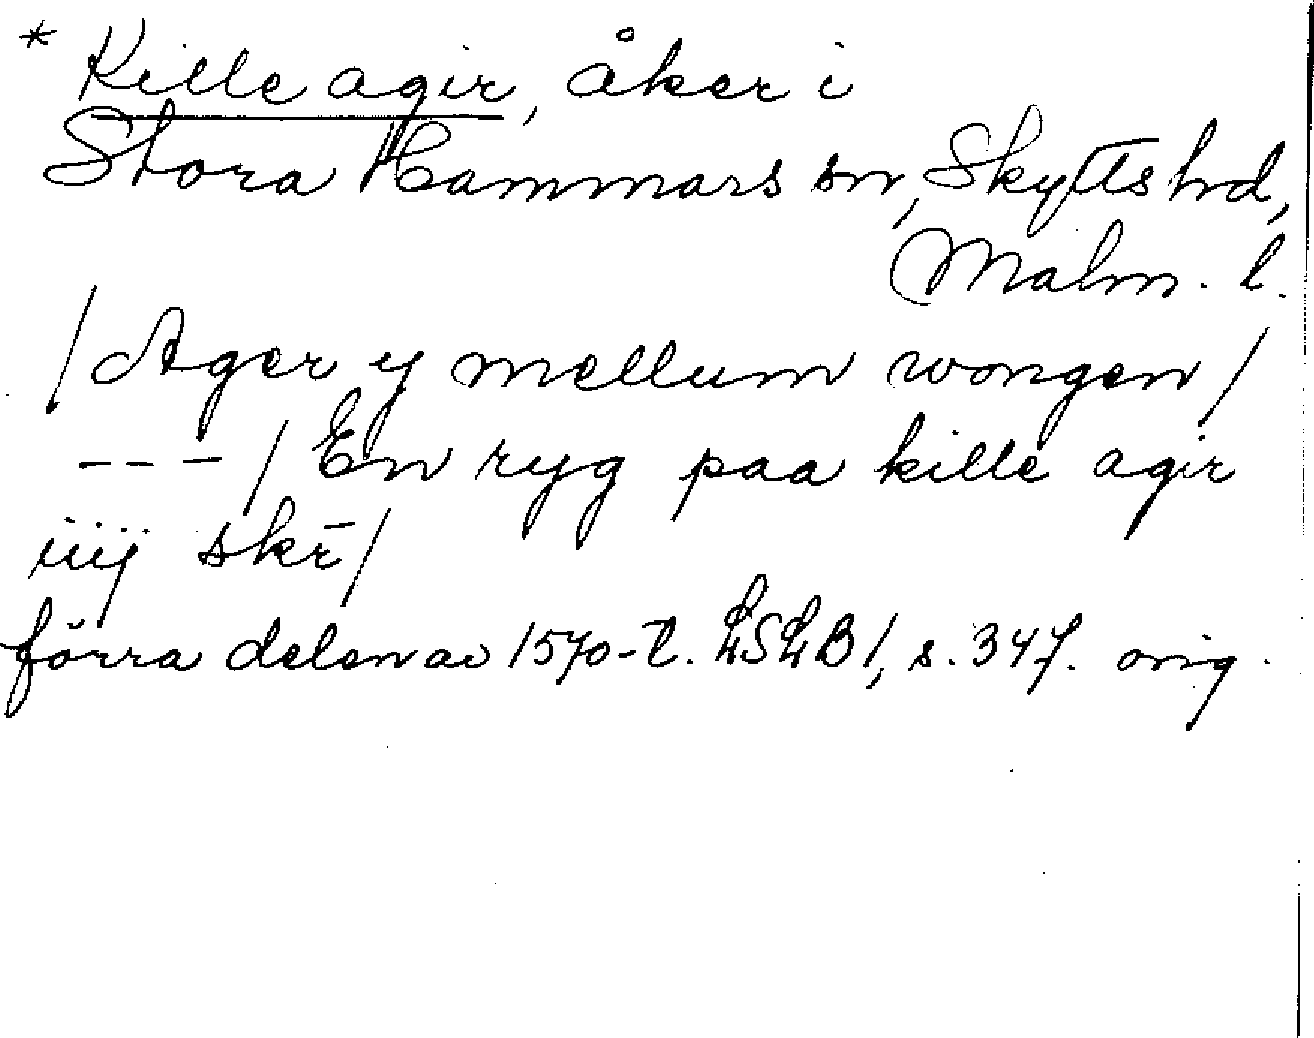 * Kille agir, åker i
Stora Hammars sn, Skytts hd,
Malm. l.
/Ager y mellum wongen/
---/En ryg paa kille agir
iiij skr̄/
förra delen av 1570-t. LSLB1, s. 347. orig.